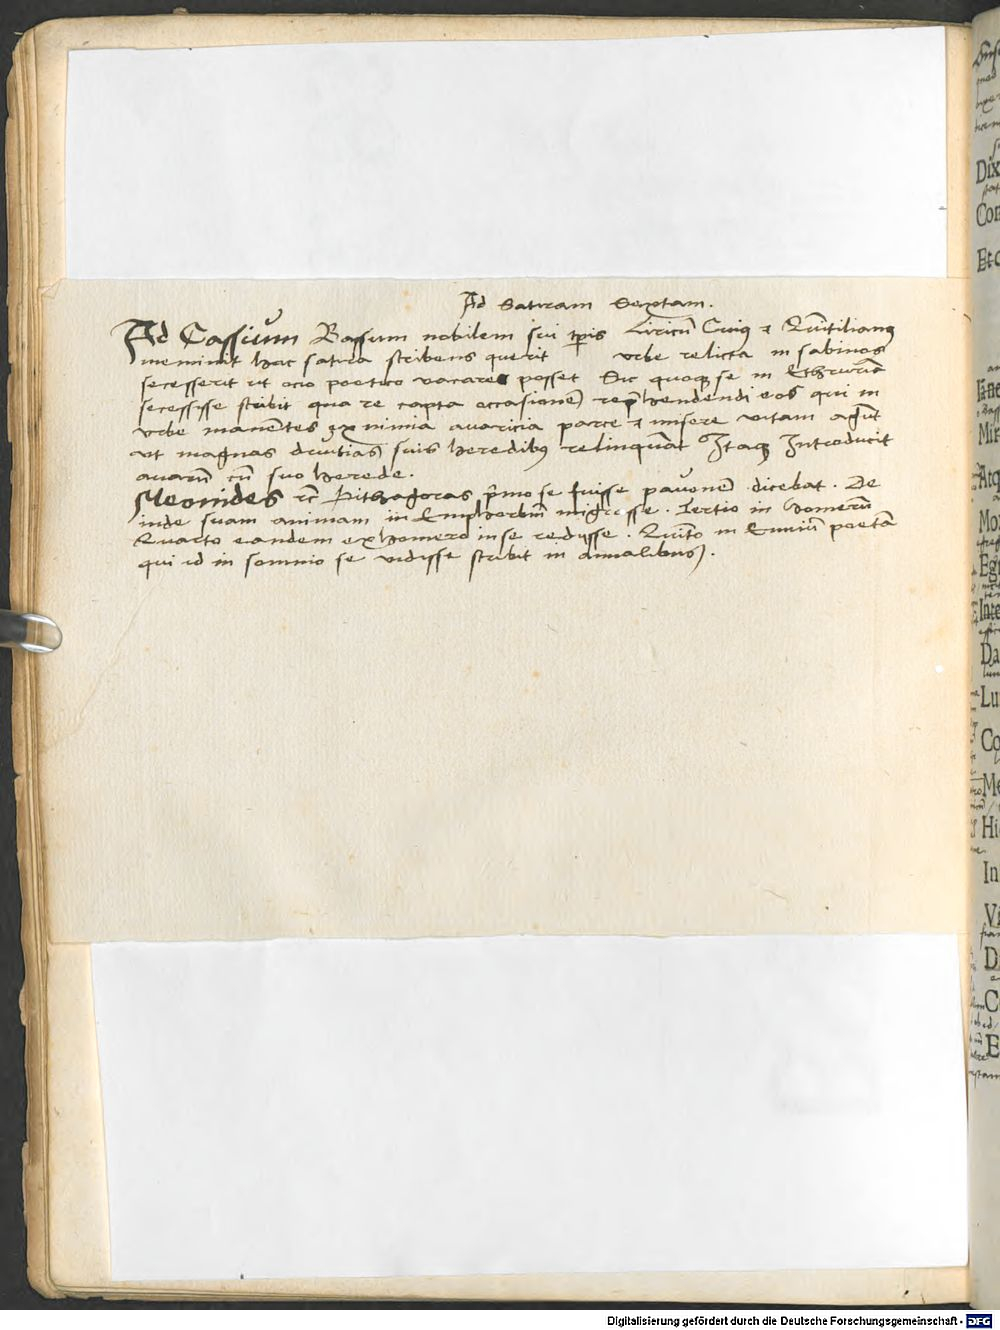 Ad Satiram Sextam.
Ad Cassium Bassum nobilem sui tp̄is Liricū Cuiꝰ ⁊ Quītilianꝰ
meminit hac satira scribens querit urbe relicta in sabinos
secesserit ut ocio poetico vacare posset Sic quoqꝫ se in Ethruriā
secessisse scribit qua re capta occasione rep̄hendendi eos qui in
urbe manētes ex nimia avaricia parce ⁊ misere vitam agūt
ut magnas divitias suis heredibꝰ relinquāt Itaqꝫ Introducit
avarū cū suo herede.
Meonides rc̄ Pithagoras p̄mo se fuisse pavonem dicebat. De
inde suam animam in Emphorbiū migrosse. Tertio in homerū
Quarto eandem ex homero in se redysse. Quīto in Enniū poetā
qui id in somnio se vidisse scribit in annalibus.
Dix
Con
Et c
Mi
Atq
Mo
Eg
Inte
Da
Lu
Co
Me
Hi
In
Vi
D
C
E
Digitalisierung gefördert durch die Deutsche Forschungsgemeinschaft - DFG